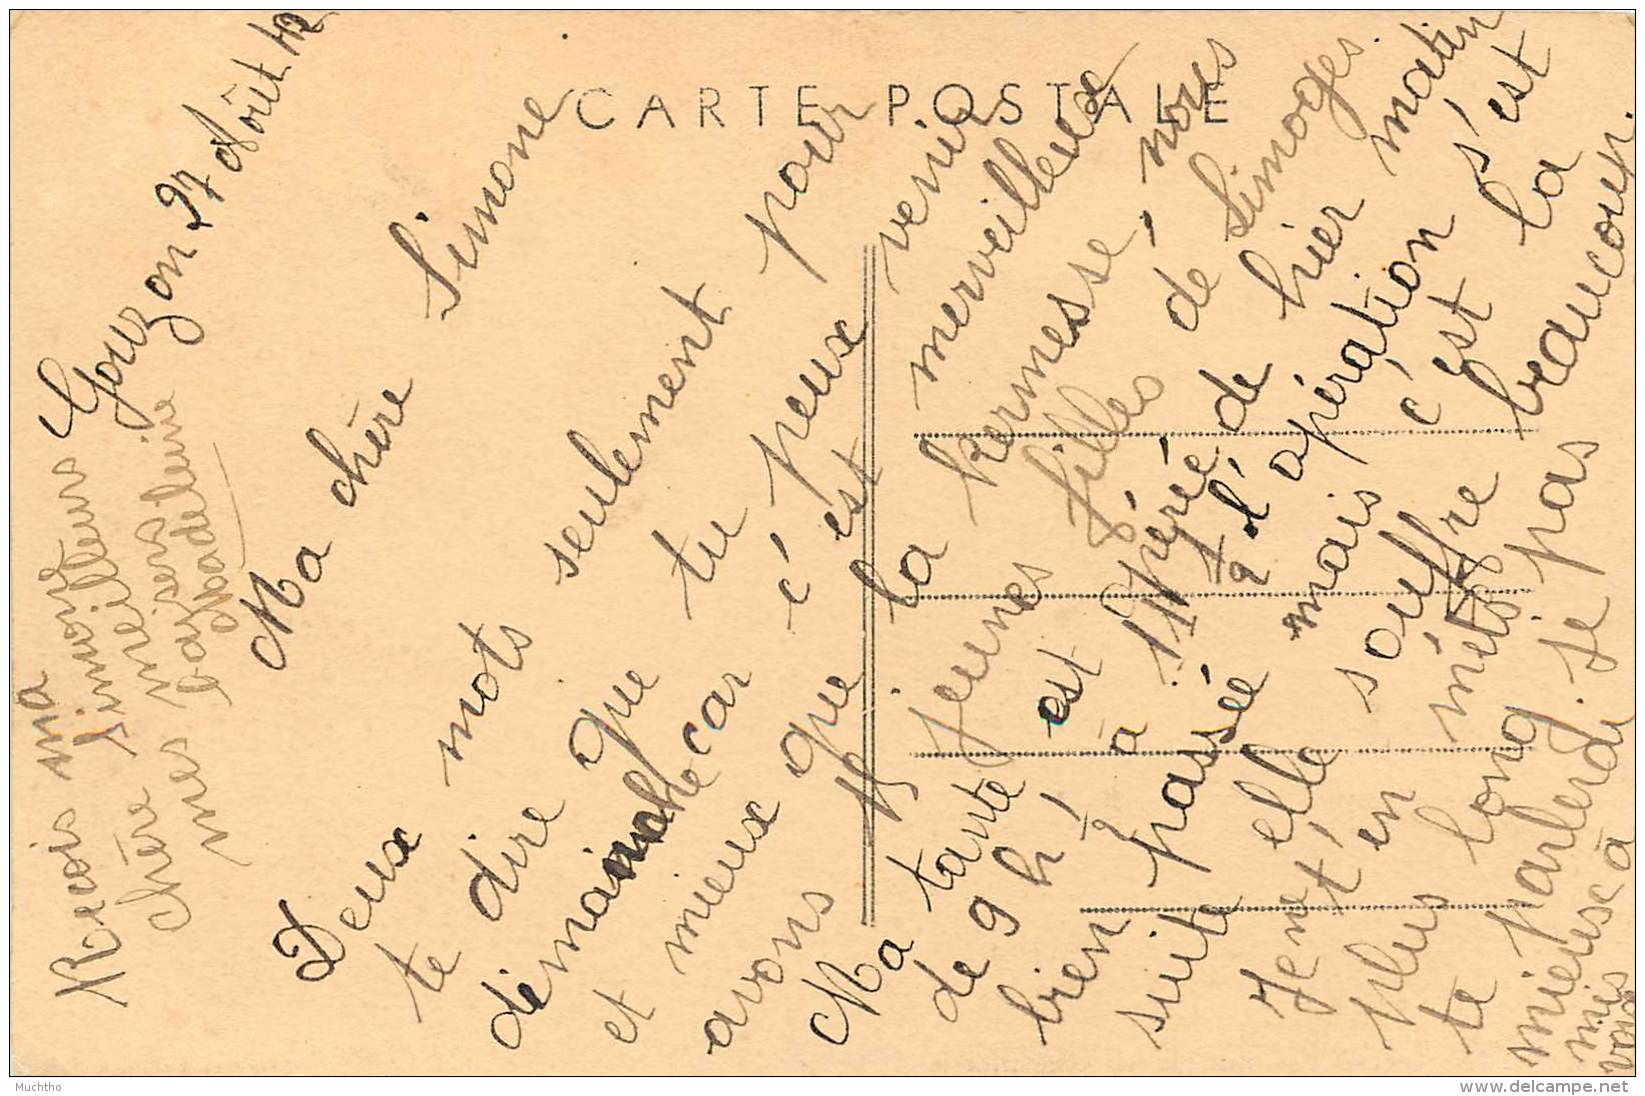 CARTE POSTALE
Gouzon 27 Août 42
Ma chère Simone
Deux mots seulement pour
te dire que tu peux venir
dimanche car c'est merveilleux
et mieux que la kermesse, nous
avons 15 jeunes filles de Limoges.
Ma tante est opérée de hier matin
de 9 h, à 11 h 1/2 l'opération s'est
bien passée mais c'est la
suite elle souffre beaucoup.
Je ne t'en mets pas
plus long je
te parlerai
mieux à
mis
vous
Reçois ma
chère Simone
mes meilleurs
baisers
Madeleine
Muchtho
delcampe.net